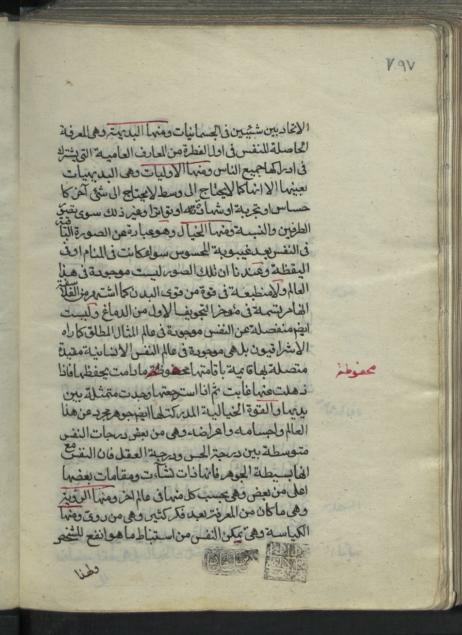 ٧٩٧
الاتحاد بين شيئين فى الجسمانيات ومنها البديهة وهى المعرفة
الحاصلة للنفس فى اول الفطرة من المعارف العامية التى يشترك
فى ادراكها جميع الناس ومنها الاوليات وهى البديهيات
بعينها الا انها كما لا يحتاج الى وسط لا يحتاج الى شئ آخر كا
حساس او تجربة او شهادة او تواتر او غير ذلك سوى تصور
الطرفين والنسبة ومنها الخيال وهو عبارة عن الصورة الباقية
فى النفس بعد غيبوبة المحسوس سواء كانت فى المنام او فى
اليقظة وعندنا ان تلك الصور ليست موجودة فى هذا
العالم ولا منطبعة فى قوة من قوى البدن كما اشتهر من الفلاسفة
انها مرتسمة فى مؤخر التجويف الاول من الدماغ وليست
ايضا منفصلة عن النفس موجودة فى عالم المثال المطلق كما رآه
الاشراقيون بل هى موجودة فى عالم النفس الانسانية مقيدة
متصلة بها قائمة باقامتها محفوظة ما دامت يحفظها فاذا
محفوظة
ذهلت عنها غابت ثم اذا استرجعتها وجدت متمثلة بين
يديها والقوة الخيالية المدركة لها ايضا جوهر مجرد عن هذا
العالم واجسامه واعراضه وهى من بعض درجات النفس
متوسطة بين درجة الحس ودرجة العقل فان النفس مع
انها بسيطة الجوهر فانها ذات نشاءات ومقامات بعضها
اعلى من بعض وهى بحسب كل منها فى عالم آخر ومنها الروية
وهى ما كان من المعرفة بعد فكر كثير وهى من روى ومنها
الكياسة وهى تمكن النفس من استنباط ما هو انفع للشخص
ولهذا